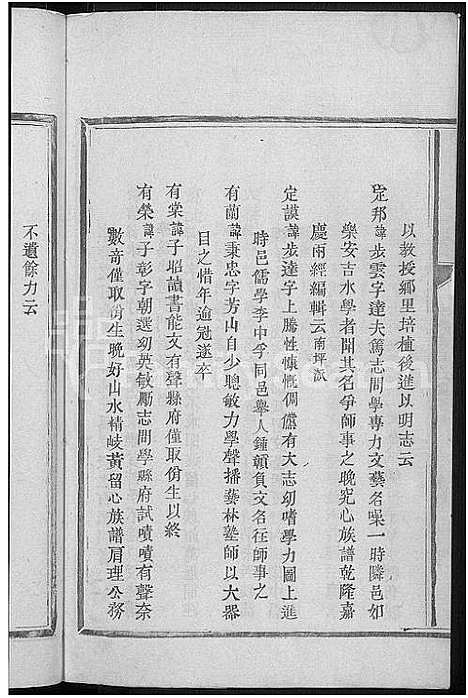 以教授鄉里培植後進以明志云
定邦諱步雲字達夫篤志問學專力文藝名噪一時隣邑如
樂安吉水學者聞其名爭師事之晚究心族譜乾隆嘉
慶兩經編輯云南坪派
定謨諱步達字上騰性慷慨倜儻有大志幼嗜學力圖上進
時邑儒學李中孚同邑舉人鍾顗負文名徃師事之
有蘭諱秉忠字芳山自少聰敏力學聲播藝林塾師以大器
目之惜年逾冠遂卒
有棠諱子昭讀書能文有聲縣府僅取佾生以終
有榮諱子彰字朝選幼英敏勵志問學縣府試嘖嘖有聲奈
數奇僅取佾生晚好山水精岐黃留心族譜肩理公務
不遺餘力云